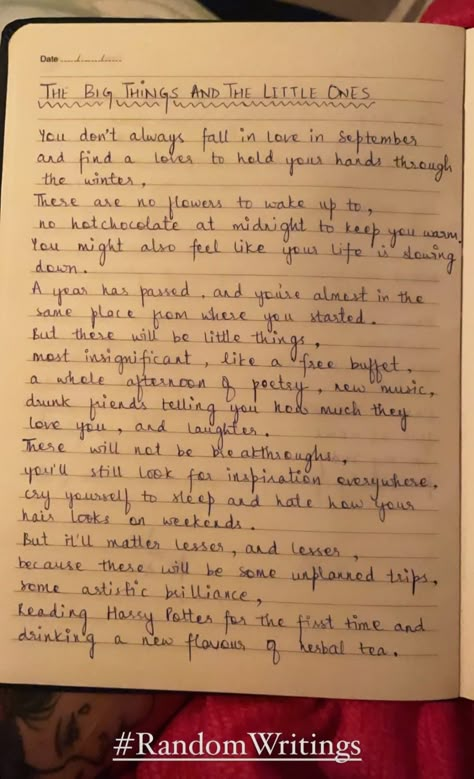 Date ..../..../....
THE BIG THINGS AND THE LITTLE ONES
You don't always fall in love in September
and find a lover to hold your hands through
the winter,
There are no flowers to wake up to,
no hotchocolate at midnight to keep you warm.
You might also feel like your life is slowing
down.
A year has passed, and you're almost in the
same place from where you started.
But there will be little things,
most insignificant, like a free buffet,
a whole afternoon of poetry, new music,
drunk friends telling you how much they
love you, and laughter.
There will not be breakthroughs,
you'll still look for inspiration everywhere,
cry yourself to sleep and hate how your
hair looks on weekends.
But it'll matter lesser, and lesser,
because there will be some unplanned trips,
some artistic brilliance,
Reading Harry Potter for the first time and
drinking a new flavour of herbal tea.
#RandomWritings